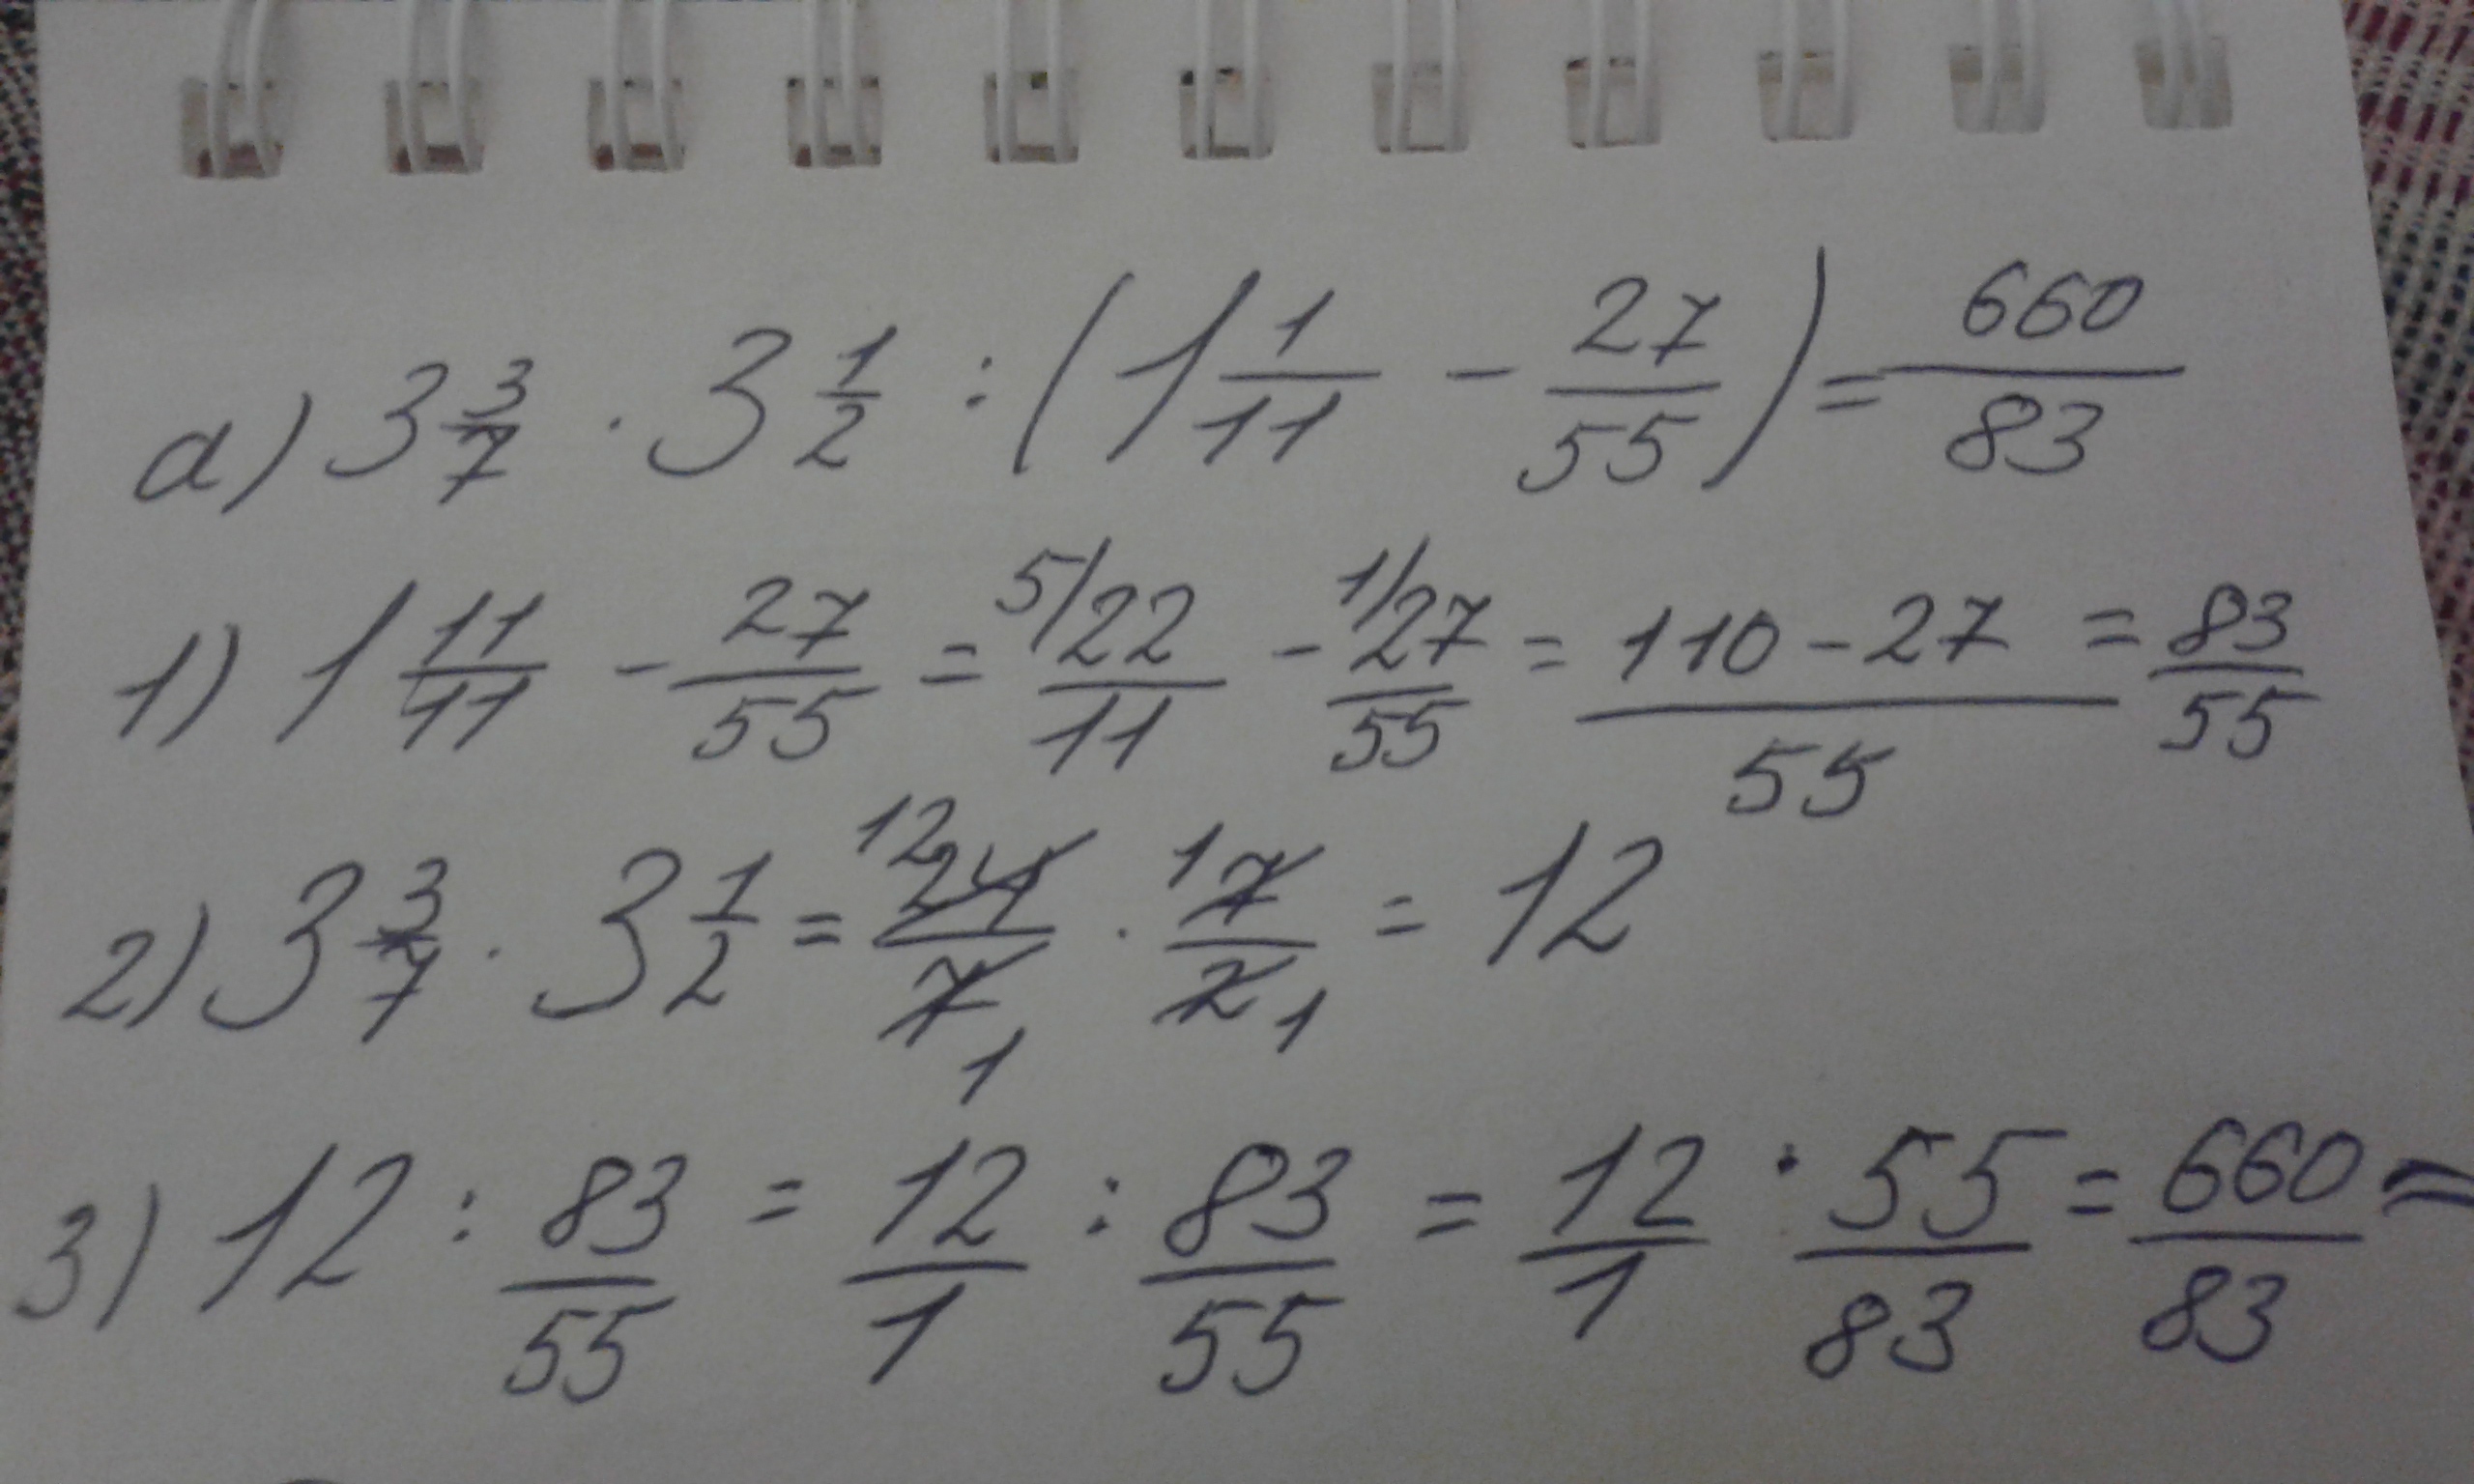 а) 3 3/7 · 3 1/2 : (1 1/11 - 27/55) = 660/83
1) 1 11/11 - 27/55 = 5/ 22/11 - 1/ 27/55 = 110-27/55 = 83/55
2) 3 3/7 · 3 1/2 = 12 24/7 1 · 1 7/2 1 = 12
3) 12 : 83/55 = 12/1 : 83/55 = 12/1 · 55/83 = 660/83 =